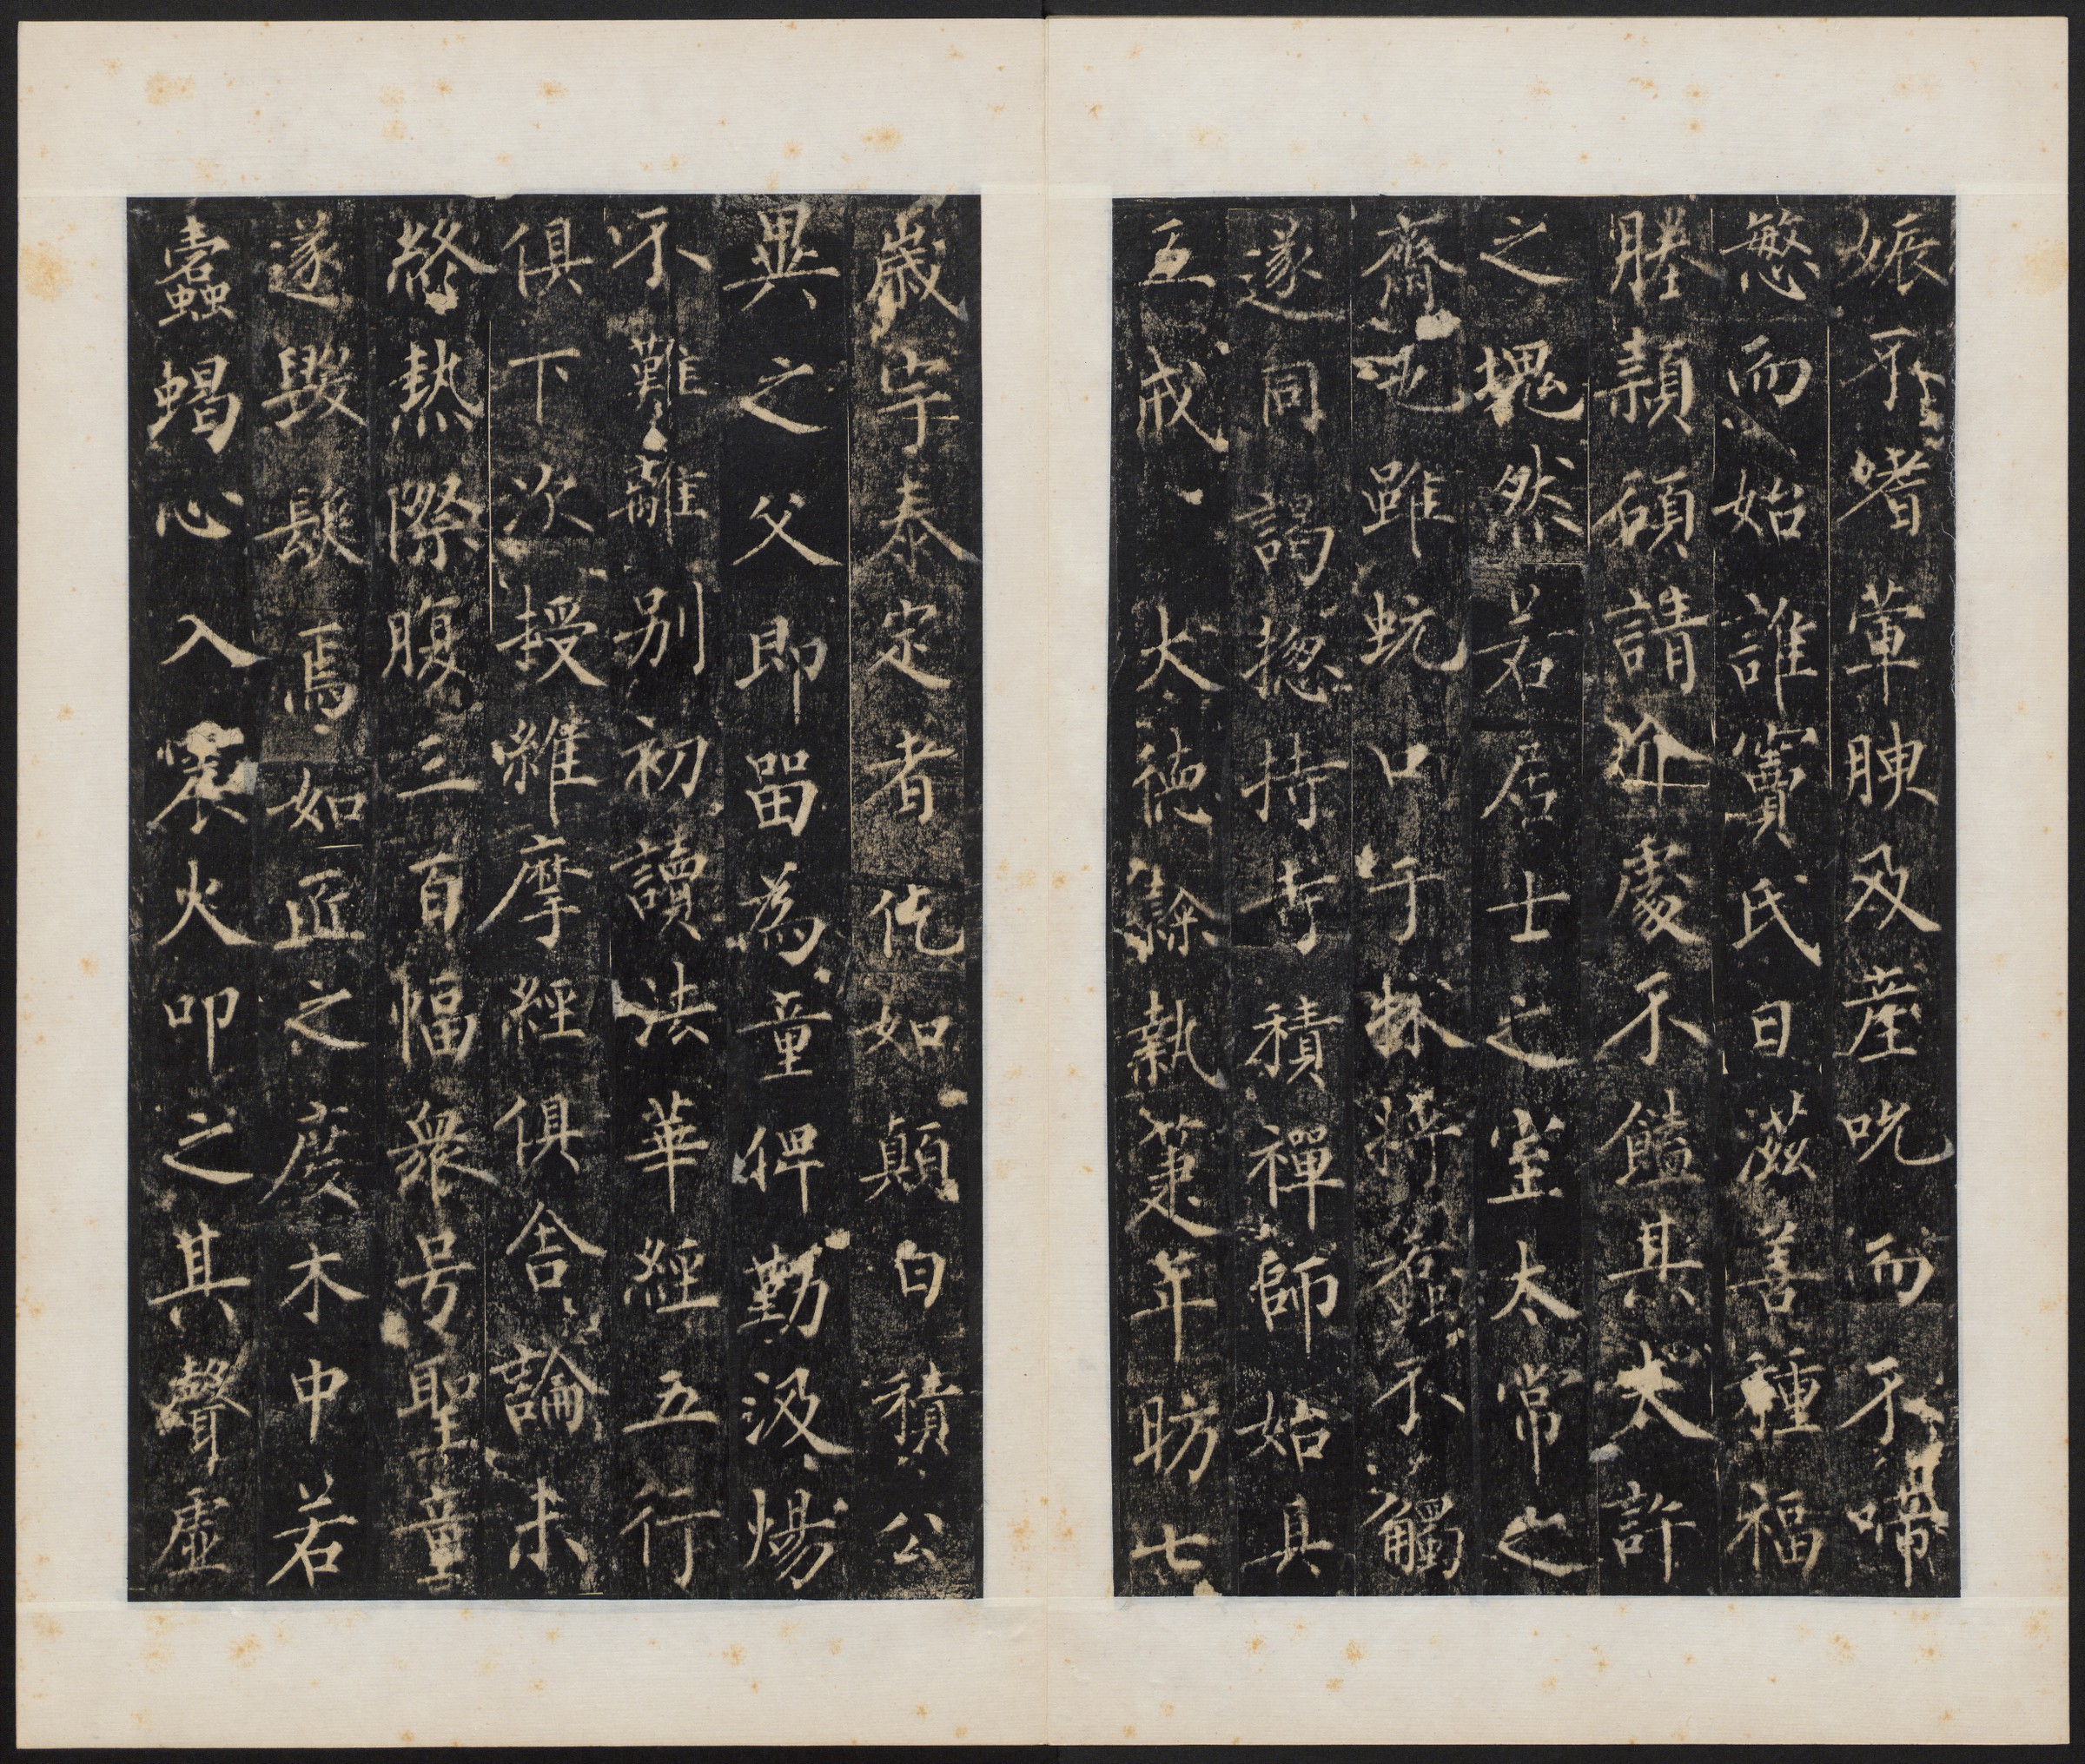 娠不嗜葷腴及産吮而不啼
慜而始誰竇氏曰茲善種福
胜顙碩請近處不饁其太許
之塊然若居士之室太常之
齋也雖蚖口于蛛將若不觸
遂同謁揔持寺積禪師始具
五戒大德餘執筆年昉七
歲宇泰定者仡如顛白積公
異之父即留為童俾勤汲煬
不難離別初讀法華經五行
俱下次授維摩經俱舍論未
終熱際腹三百幅衆号聖童
遂毀髮焉如匠之度木中若
蠹蝎心入寰火叩之其聲虛